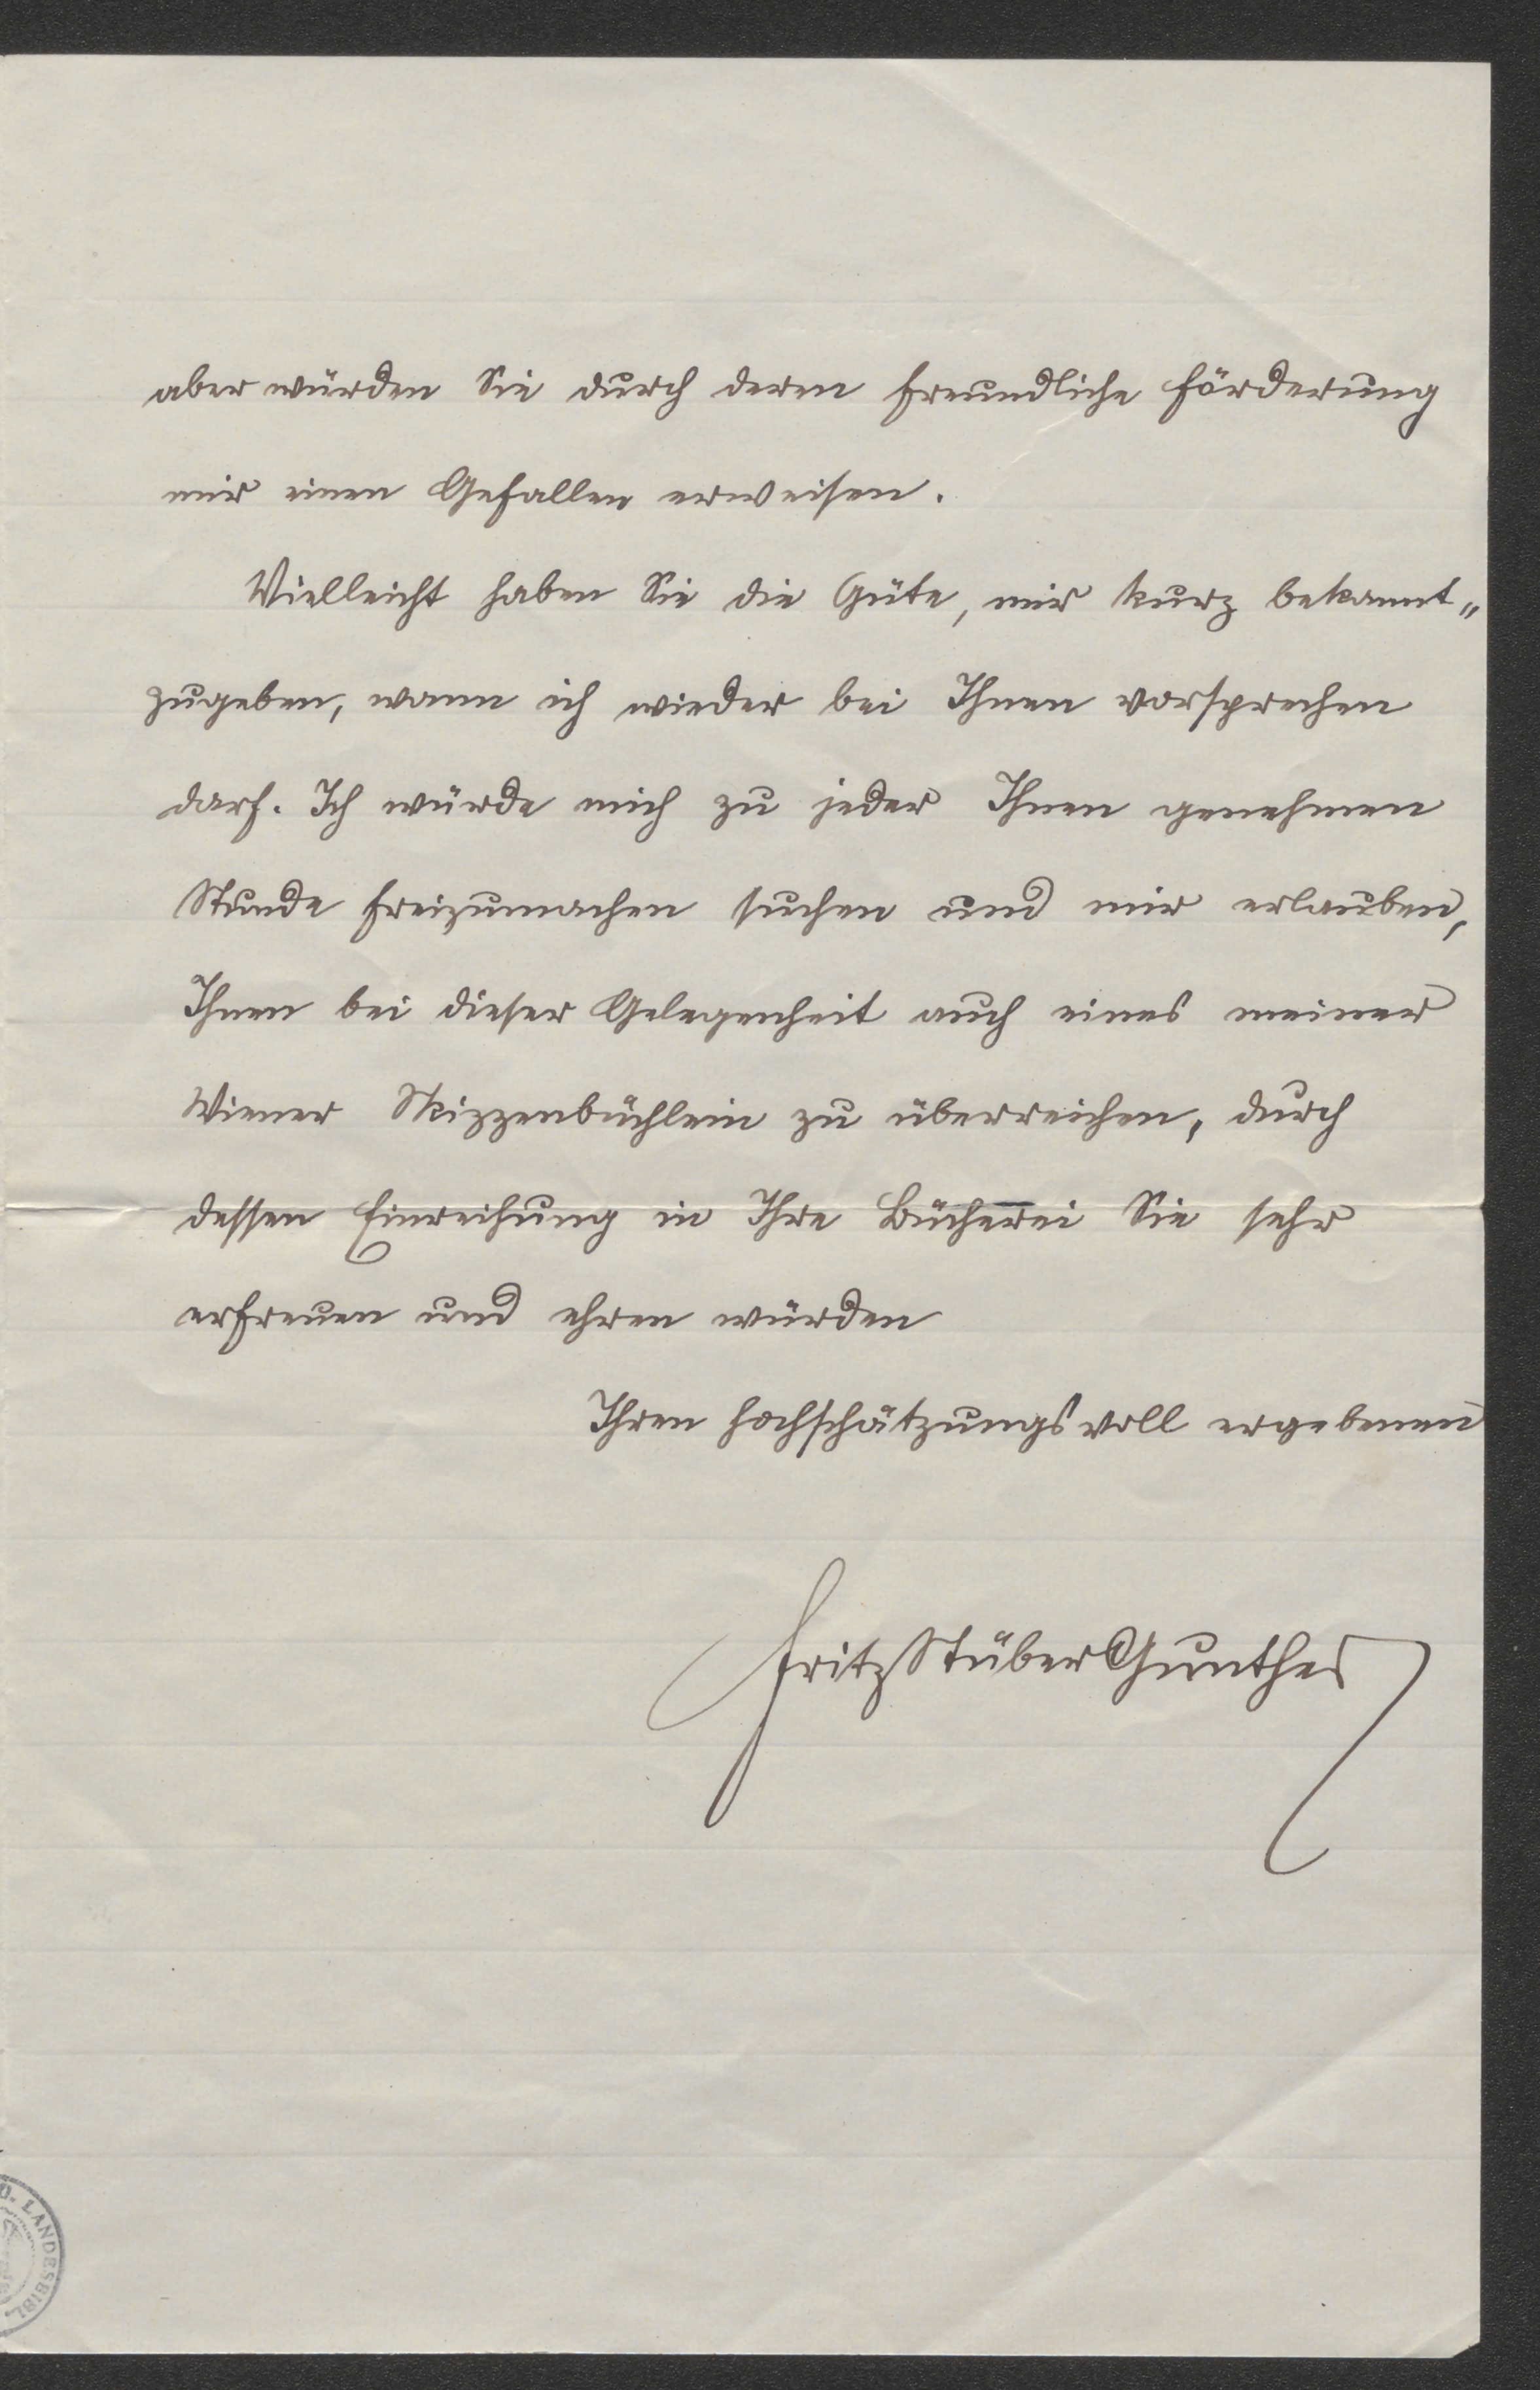 aber würden Sie durch deren freundliche Förderung
mir einen Gefallen erweisen.
Vielleicht haben Sie die Güte, mir kurz bekannt„
zugeben, wann ich wieder bei Ihnen vorsprechen
darf. Ich würde mich zu jeder Ihnen genehmen
Stunde freizumachen suchen und mir erlauben,
Ihnen bei dieser Gelegenheit auch eines meiner
Wiener Skizzenbüchlein zu überreichen, durch
dessen Einreihung in Ihre Bücherei Sie sehr
erfreuen und ehren würden
Ihren hochschätzungsvoll ergebenen
Fritz Stüber Gunther
O. LANDESBIBL.